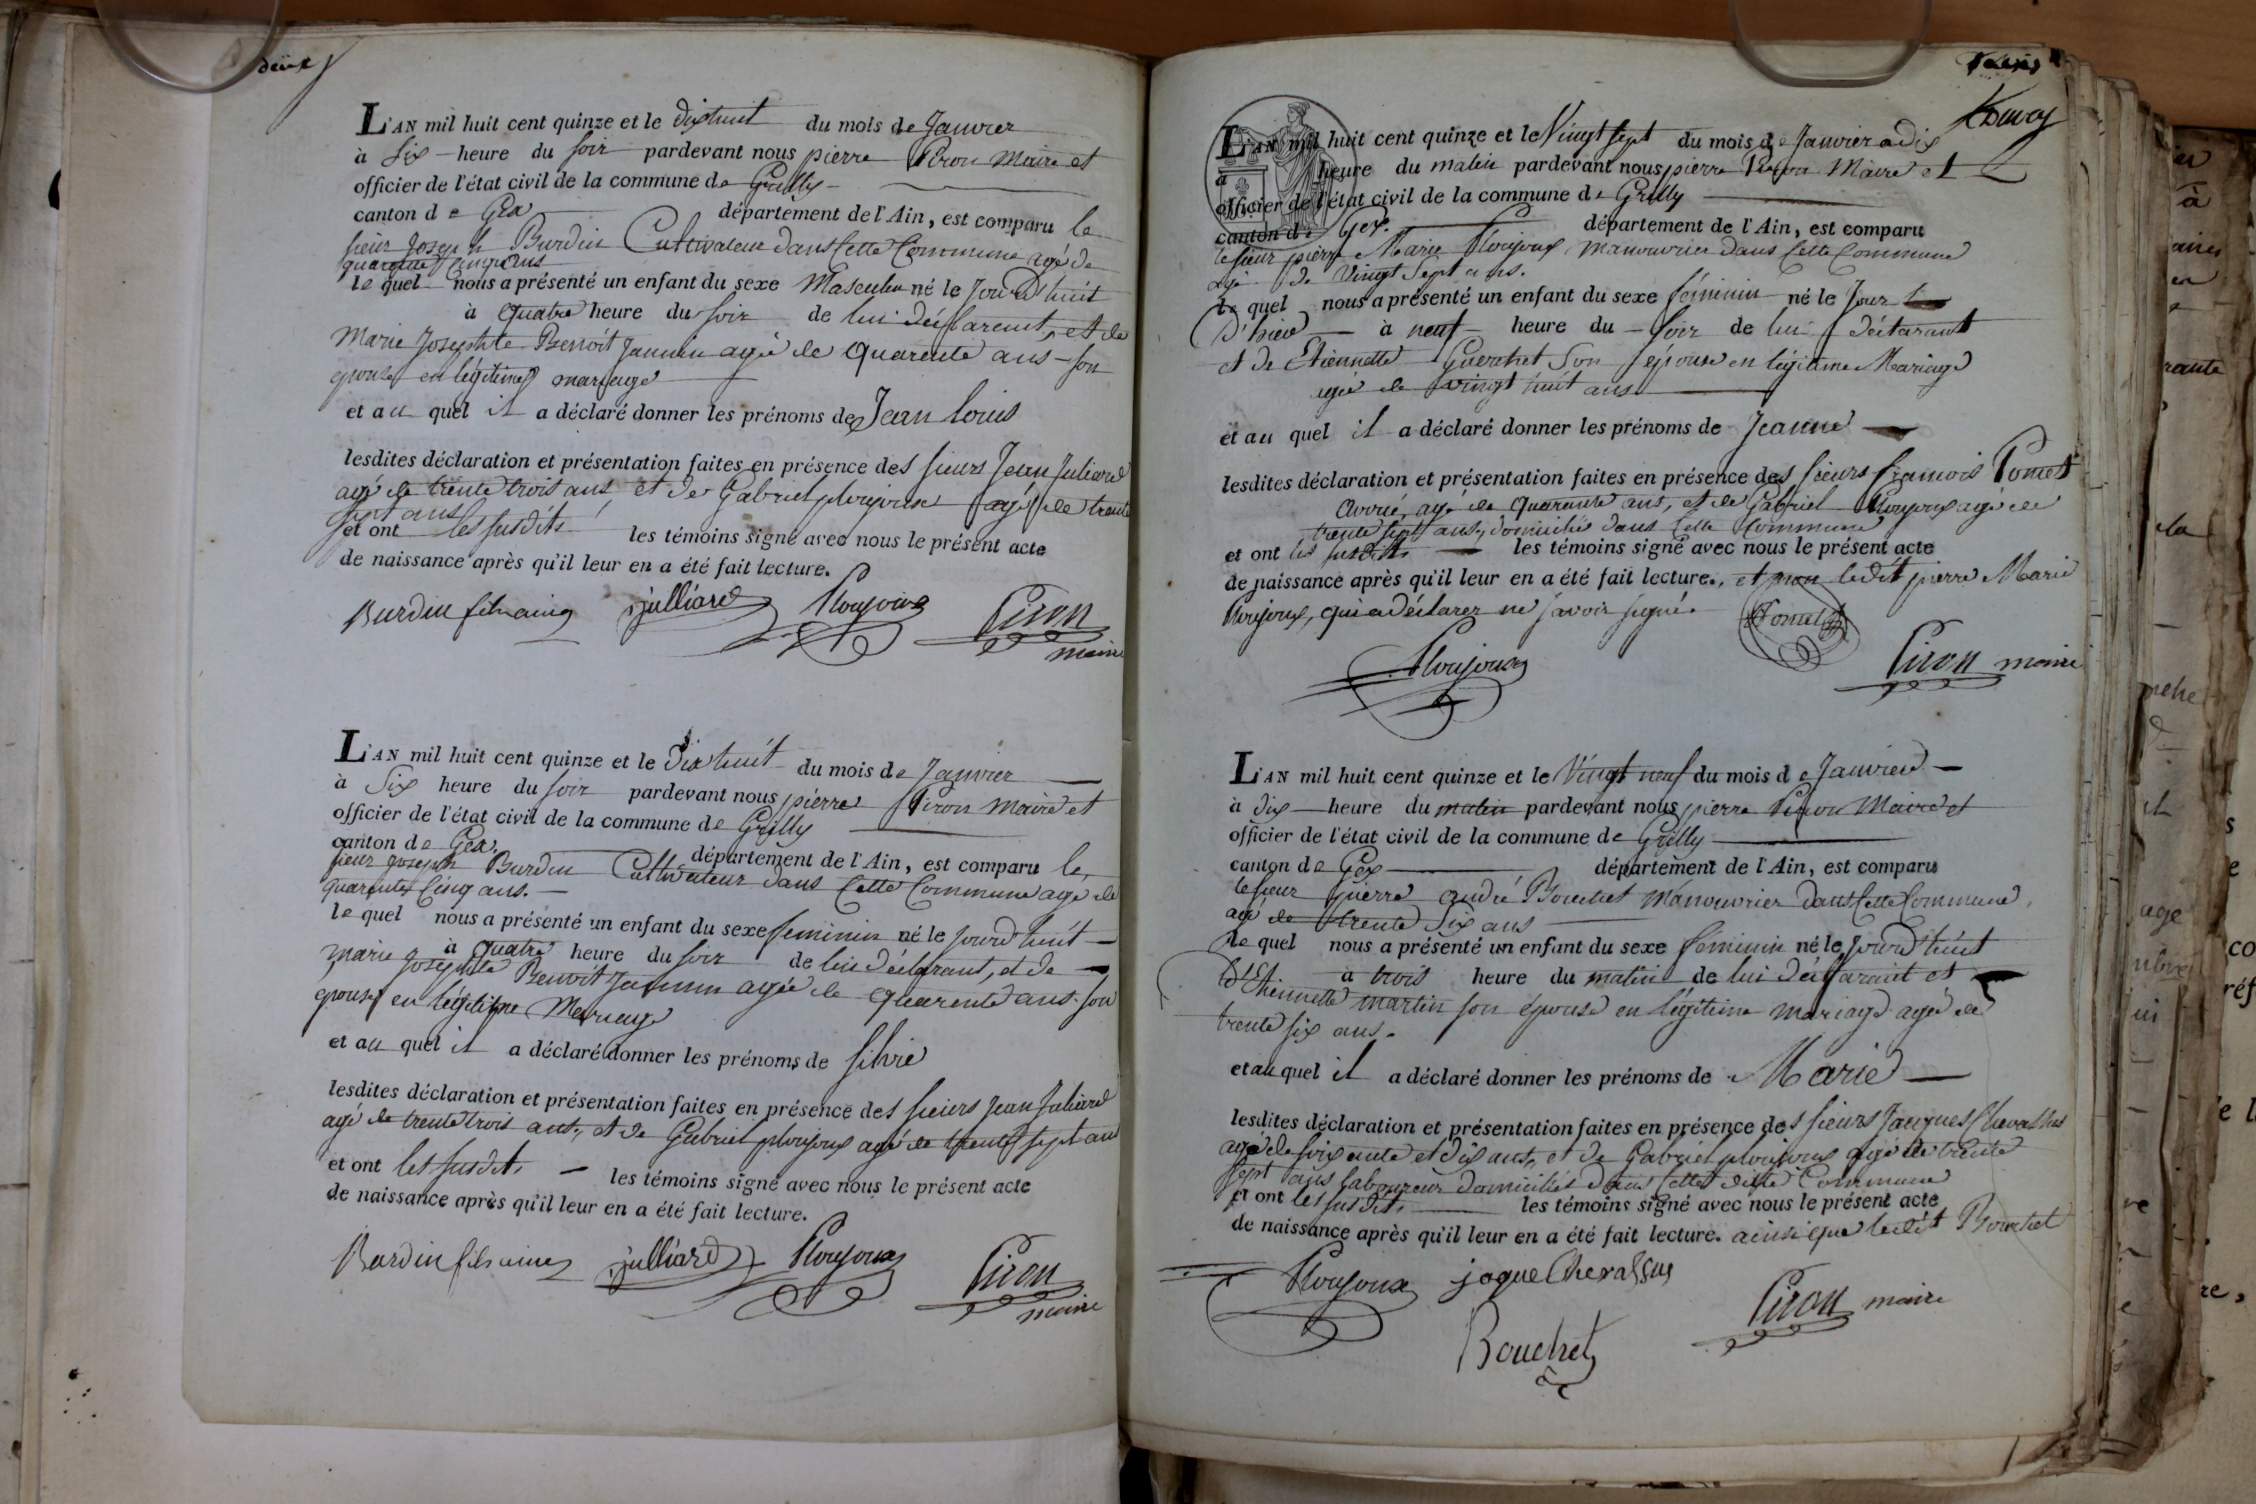 deux
L'AN mil huit cent quinze et le dixhuit du mois de Janvier
à Six heure du soir pardevant nous pierre Piron Maire et
officier de l'état civil de la commune de Grilly
canton de Gex département de l'Ain, est comparu le
sieur Joseph Burdin Cultivateur dans Cette Commune agé de
quarante Cinq ans
le quel nous a présenté un enfant du sexe Masculin né le Jourd'huit
à quatre heure du soir de lui déclarent, et de
Marie Josephte Benoit Jannin agée de quarente ans son
epouse en légitime mariage
et au quel il a déclaré donner les prénoms de Jean Louis
lesdites déclaration et présentation faites en présence des sieurs Jean Juliard
agé de trente trois ans, et de Gabriel ploujoux agé de trente
sept ans
et ont les susdits les témoins signé avec nous le présent acte
de naissance après qu'il leur en a été fait lecture.
Burdin fils ainé julliard Ploujoux Piron
maire
L'AN mil huit cent quinze et le Dix huit du mois de Janvier
à Six heure du soir pardevant nous pierre Piron Maire et
officier de l'état civil de la commune de Grilly
canton de Gex. département de l'Ain, est comparu le
sieur Joseph Burdin Cultivateur dans Cette Commune agé de
quarante Cinq ans.
le quel nous a présenté un enfant du sexe feminin né le jourd'huit
à quatre heure du soir de lui déclarant, et de
marie Josephte Benoit Jannin agée de quarente ans son
epouse en légitime Mariage
et au quel il a déclaré donner les prénoms de Silvie
lesdites déclaration et présentation faites en présence des sieurs Jean Juliard
agé de trente trois ans, et de Gabriel ploujoux agé de trente sept ans
et ont les susdits les témoins signé avec nous le présent acte
de naissance après qu'il leur en a été fait lecture.
Burdin fils ainé julliard Ploujoux Piron
maire
trois
L'AN mil huit cent quinze et le Vingt sept du mois de Janvier a dix
à heure du matin pardevant nous pierre Piron Maire et
officier de l'état civil de la commune de Grilly
canton de Gex. département de l'Ain, est comparu
le sieur pierre Marie Ploujoux manouvrier dans Cette Commune
agé de Vingt Sept ans.
le quel nous a présenté un enfant du sexe féminin né le Jour
D'hier à neuf heure du soir de lui déclarant
et de Etiennette Guerchet Son epouse en légitime Mariage
agée de vingt huit ans
et au quel il a déclaré donner les prénoms de Jeanne
lesdites déclaration et présentation faites en présence des sieurs francois Pomet
agé de quarante ans, et de Gabriel Ploujoux agé de
trente sept ans, domiciliés dans Cette Commune
et ont les susdits les témoins signé avec nous le présent acte
de naissance après qu'il leur en a été fait lecture., et non ledit pierre Marie
Ploujoux, qui a déclarer ne savoir signé.
Pomet
Ploujoux Piron maire
L'AN mil huit cent quinze et le Vingt neuf du mois de Janvier
à dix heure du matin pardevant nous pierre Piron Maire et
officier de l'état civil de la commune de Grilly
canton de Gex département de l'Ain, est comparu
le sieur pierre andré Bouchet Manouvrier dans Cette Commune,
agé de trente Six ans
le quel nous a présenté un enfant du sexe féminin né le jourd'huit
à trois heure du matin de lui déclarant et
d'Etiennette martin son épouse en légitime mariage agée de
trente six ans.
et au quel il a déclaré donner les prénoms de Marie
lesdites déclaration et présentation faites en présence des sieurs Jacques Chevassus
agé de soixante et dix ans, et de Gabriel ploujoux agé de trente
sept ans laboureur domiciliés dans Cette ditte Commune
et ont les susdits les témoins signé avec nous le présent acte
de naissance après qu'il leur en a été fait lecture. ainsi que ledit Bouchet
Ploujoux jaque Chevassus
Piron maire
Bouchet